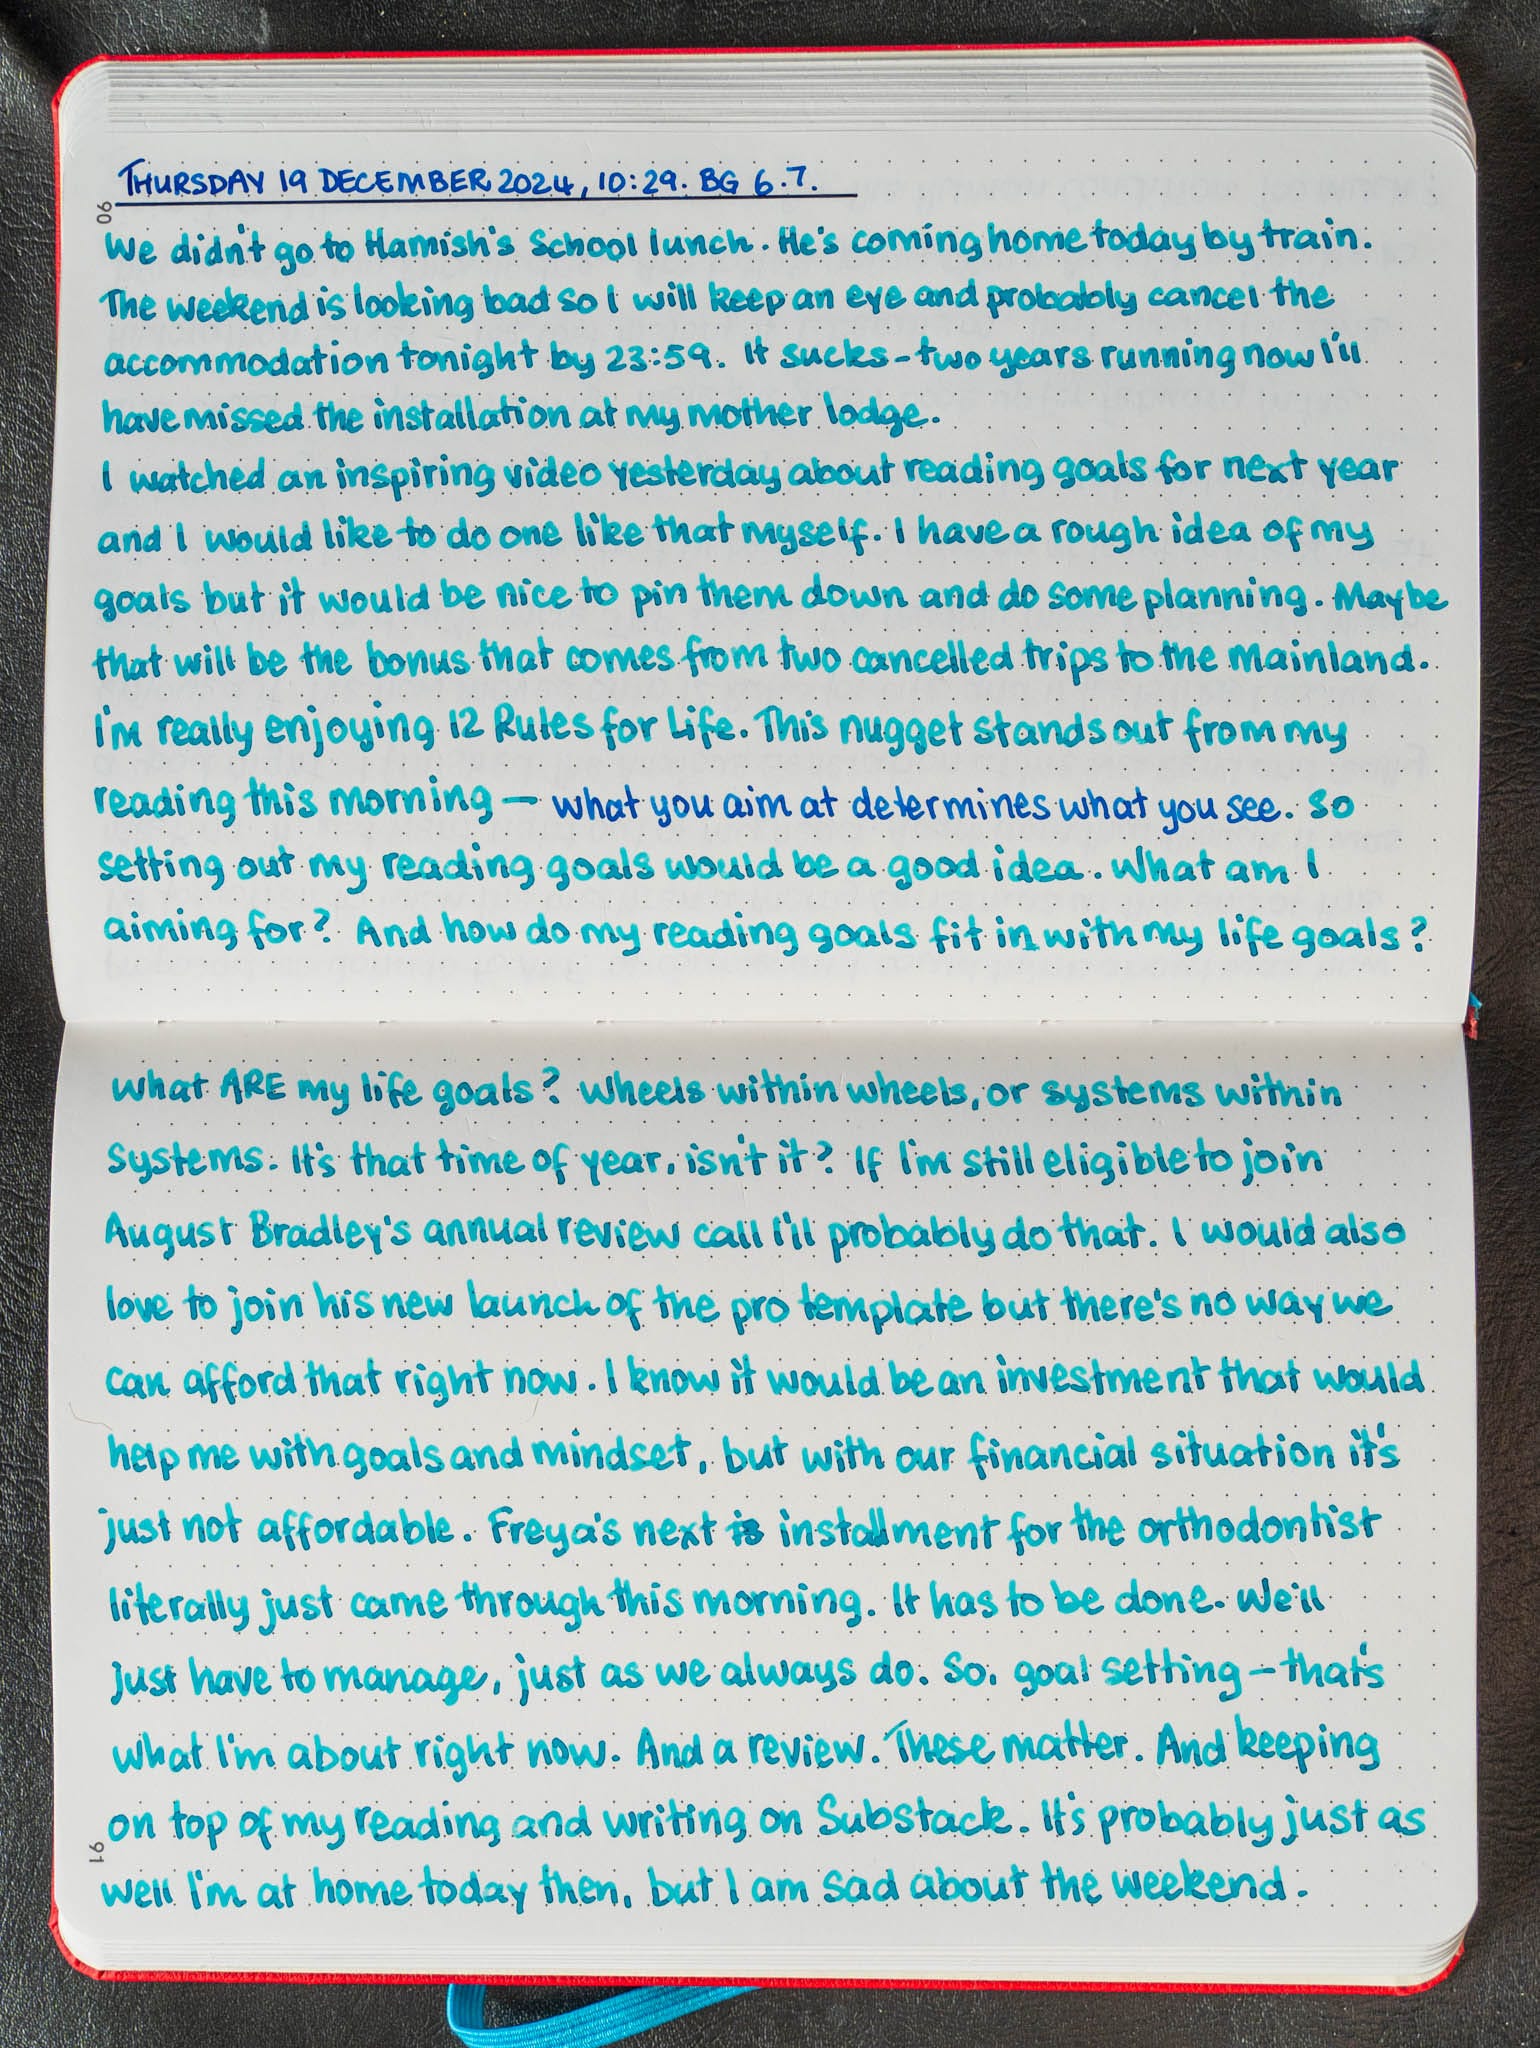 THURSDAY 19 DECEMBER 2024, 10:29. BG 6.7.
90
We didn't go to Hamish's School lunch. He's coming home today by train.
The weekend is looking bad so I will keep an eye and probably cancel the
accommodation tonight by 23:59. It sucks - two years running now I'll
have missed the installation at my mother lodge.
I watched an inspiring video yesterday about reading goals for next year
and I would like to do one like that myself. I have a rough idea of my
goals but it would be nice to pin them down and do some planning. Maybe
that will be the bonus that comes from two cancelled trips to the Mainland.
I'm really enjoying 12 Rules for Life. This nugget stands out from my
reading this morning — what you aim at determines what you see. So
setting out my reading goals would be a good idea. What am I
aiming for? And how do my reading goals fit in with my life goals?
What ARE my life goals? Wheels within wheels, or systems within
systems. It's that time of year, isn't it? If I'm still eligible to join
August Bradley's annual review call I'll probably do that. I would also
love to join his new launch of the pro template but there's no way we
can afford that right now. I know it would be an investment that would
help me with goals and mindset, but with our financial situation it's
just not affordable. Freya's next is installment for the orthodontist
literally just came through this morning. It has to be done. We'll
just have to manage, just as we always do. So, goal setting — that's
what I'm about right now. And a review. These matter. And keeping
on top of my reading and writing on Substack. It's probably just as
well I'm at home today then, but I am sad about the weekend.
91